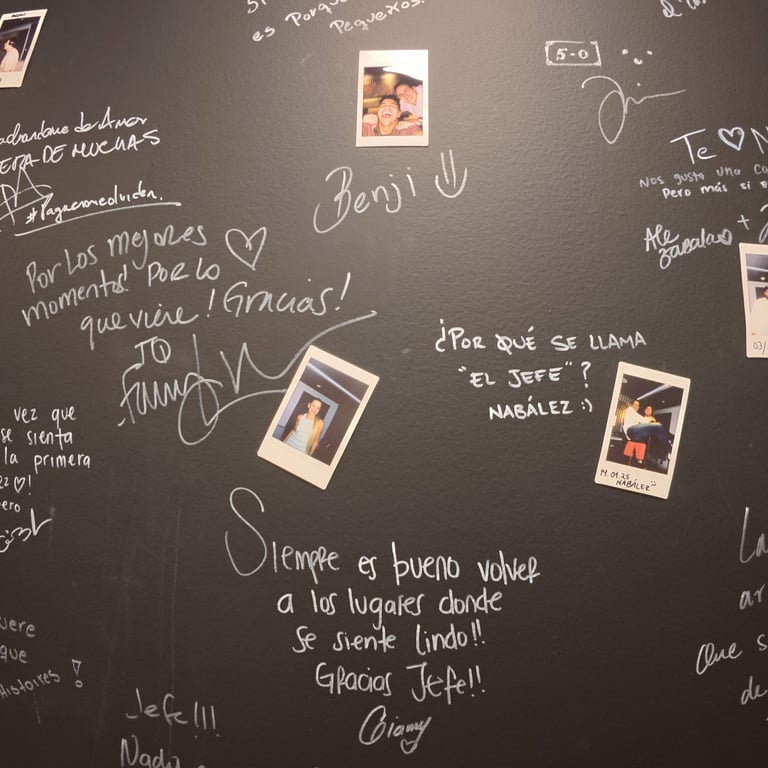 es Porque
Pequeños.
5-0
de Amor
DE MUCHAS
Benji
Te ♡
Nos gusta una
Pero más si
Ale
Zabala
+
Por los mejores
momentos! Por lo
que viene! Gracias!
¿POR QUÉ SE LLAMA
"EL JEFE"?
NABÁLEZ :)
NABÁLEZ
03/
vez que
se sienta
la primera
Siempre es bueno volver
a los lugares donde
se siente lindo!!
Gracias Jefe!!
Giamy
que
Histoires!
Jefe!!!
Nada
La
ar
Que s
de